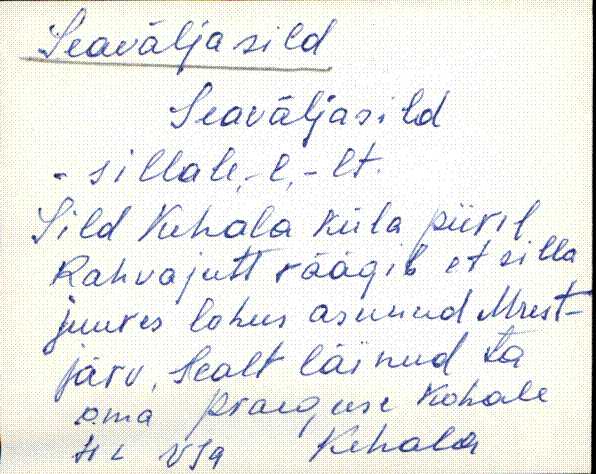 Seaväljasild
Seaväljasild
- sillale, -l, -lt.
Sild Kehala küla piiril
Rahvajutt räägib et silla
juures lohus asunud
järv. Sealt läinud ta
oma praeguse kohale
Kehala